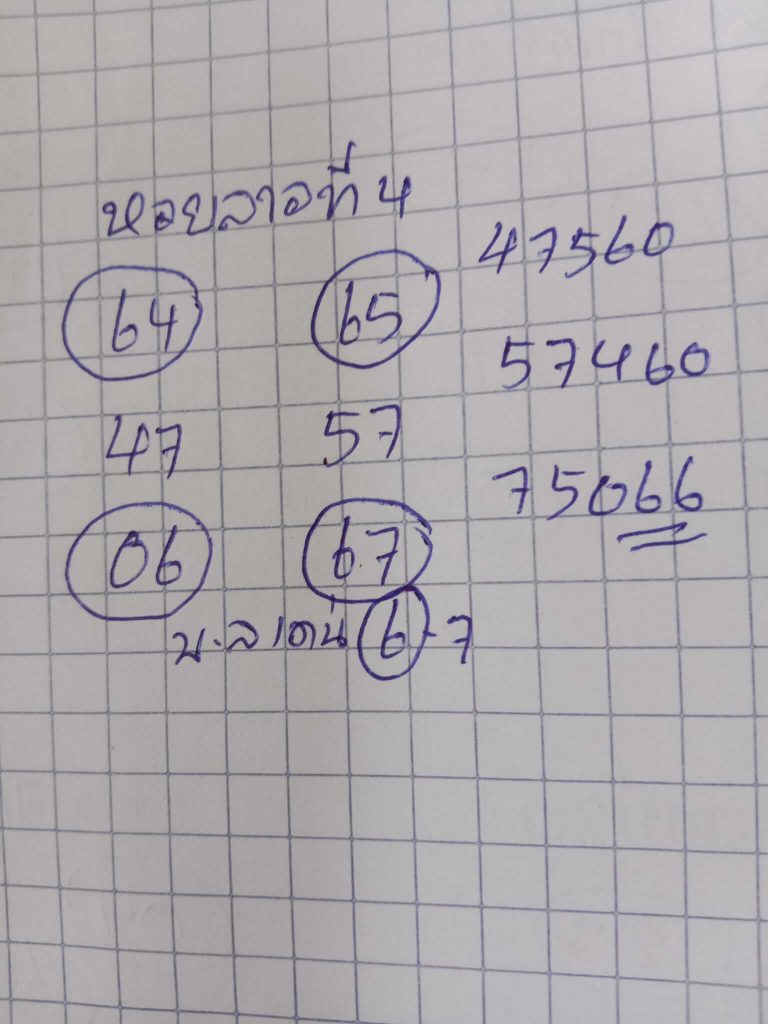 หวยลาวที่ 4
64 65
47 57
06 67
บ.ล เด่น 6-7
47560
57460
75066